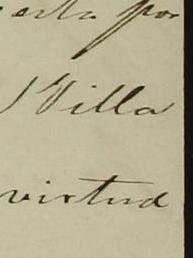 esta por
Villa
virtud